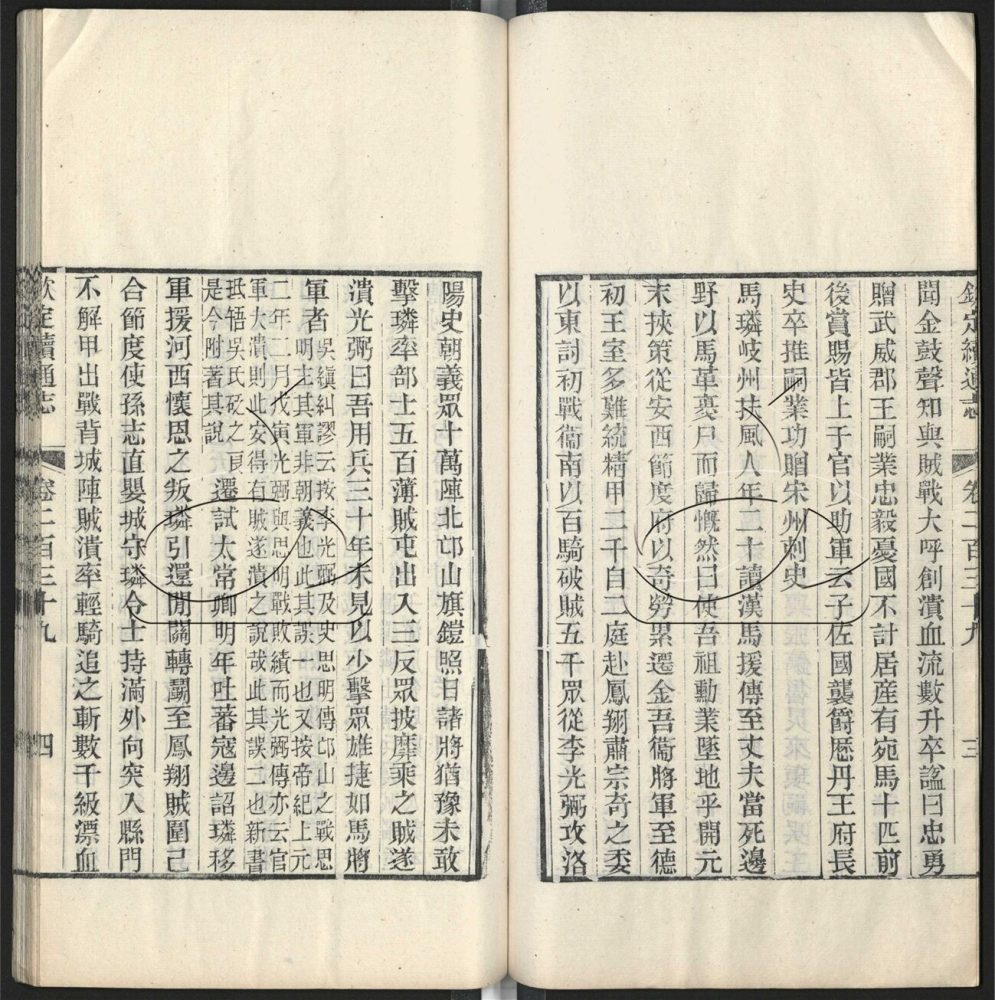 欽定續通志 卷二百三十九 三
聞金鼓聲知與賊戰大呼創潰血流數升卒謚曰忠勇
贈武威郡王嗣業忠毅憂國不計居産有宛馬十匹前
後賞賜皆上于官以助軍云子佐國襲爵歴丹王府長
史卒推嗣業功贈宋州刺史
馬璘岐州扶風人年二十讀漢馬援傳至丈夫當死邊
野以馬革裹尸而歸慨然曰使吾祖勳業墜地乎開元
末挾策從安西節度府以奇勞累遷金吾衞將軍至德
初王室多難統精甲二千自二庭赴鳳翔肅宗奇之委
以東討初戰衞南以百騎破賊五千眾從李光弼攻洛
陽史朝義眾十萬陣北邙山旗鎧照日諸將猶豫未敢
擊璘率部士五百薄賊屯出入三反眾披靡乘之賊遂
潰光弼曰吾用兵三十年未見以少擊眾雄捷如馬將
軍者吳縝糾謬云按李光弼及史思明傳邙山之戰思
明志其軍非朝義也此其誤一也又按帝紀上元
二年二月戊寅光弼與思明戰敗績而光弼傳亦云官
軍大潰則此安得有賊遂潰之說哉此其誤二也新書
牴牾吳氏砭之頁
是今附著其說遷試太常卿明年吐蕃寇邊詔璘移
軍援河西懷恩之叛璘引還閒關轉鬭至鳳翔賊圍已
合節度使孫志直嬰城守璘令士持滿外向突入縣門
不解甲出戰背城陣賊潰率輕騎追之斬數千級漂血
欽定續通志 卷二百三十九 四